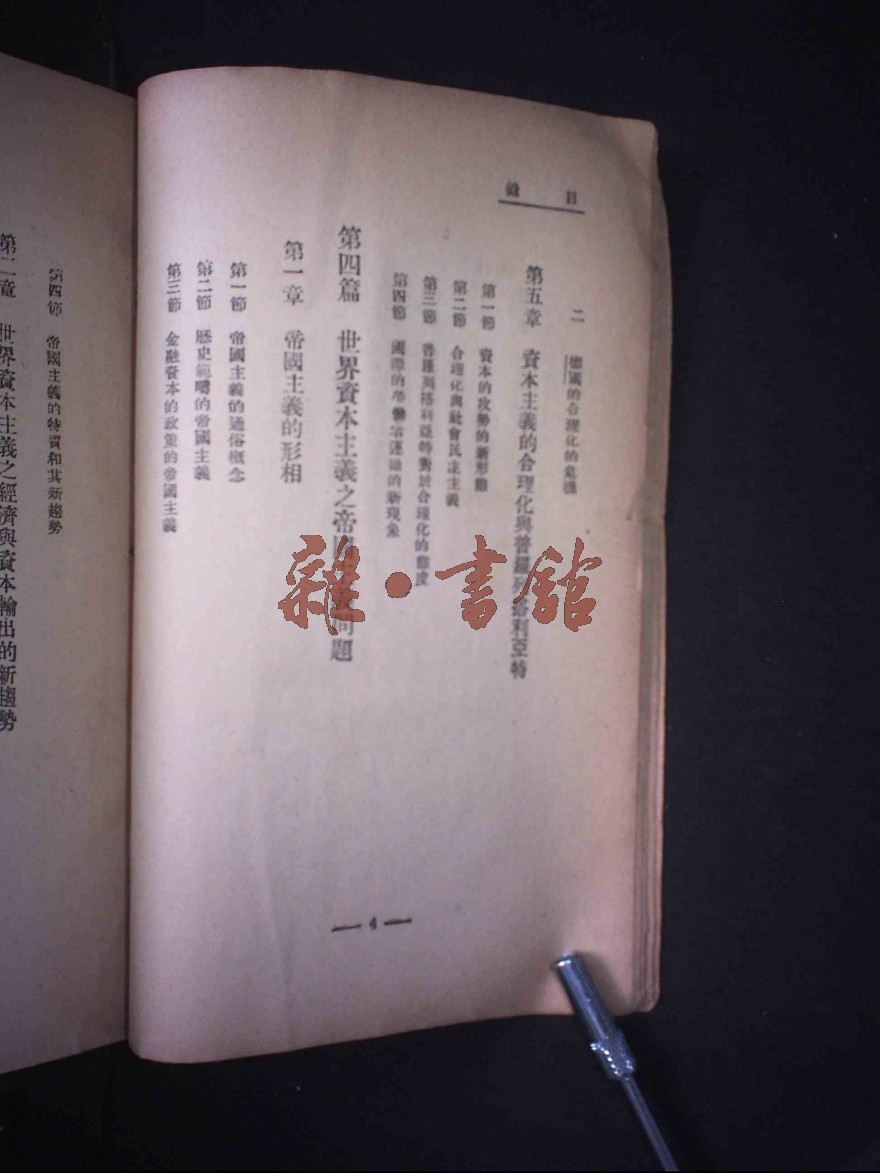 目錄
二 德國的合理化的危機
第五章 資本主義的合理化與普羅列塔利亞特
第一節 資本的攻勢的新形態
第二節 合理化與社會民主主義
第三節 普羅列塔利亞特對於合理化的態度
第四節 國際的勞働者運動的新現象
第四篇 世界資本主義之帝國主義問題
第一章 帝國主義的形相
第一節 帝國主義的通俗概念
第二節 歷史範疇的帝國主義
第三節 金融資本的政策的帝國主義
— 4 —
第四節 帝國主義的特質和其新趨勢
第二章 世界資本主義之經濟與資本輸出的新趨勢
雜·書館